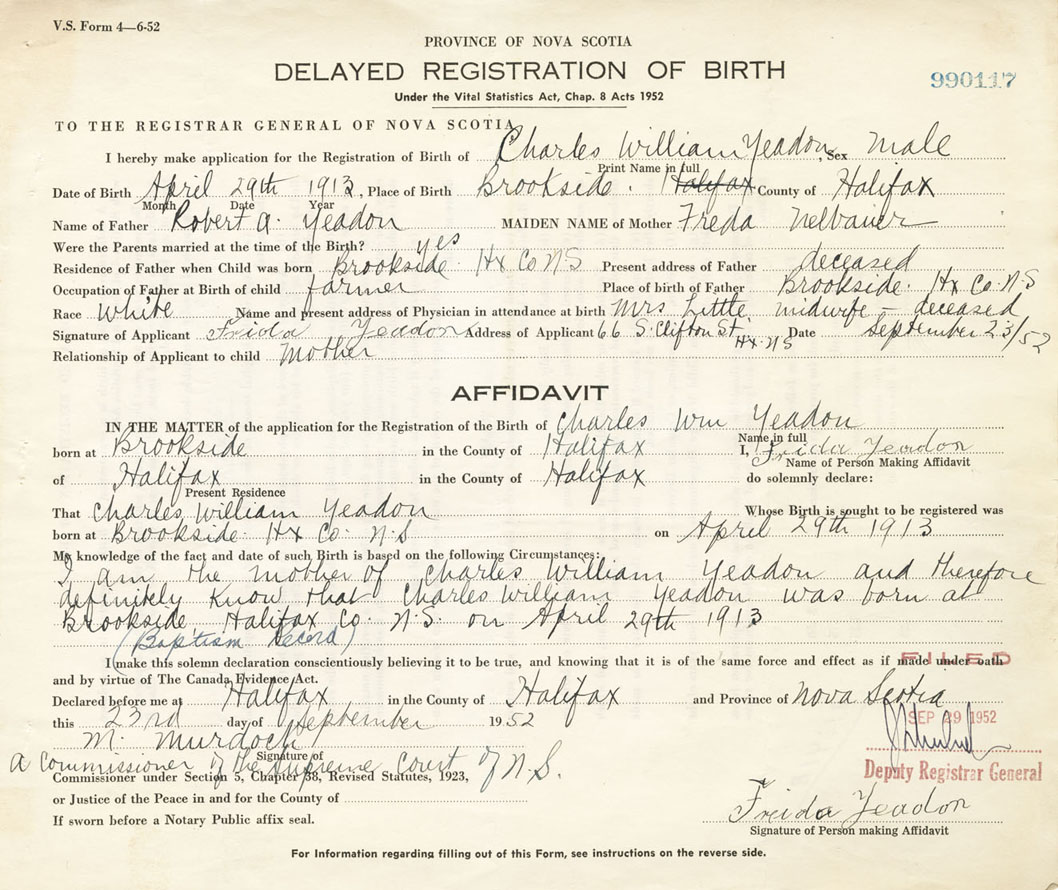 V.S. Form 4—6-52
PROVINCE OF NOVA SCOTIA
DELAYED REGISTRATION OF BIRTH
990117
Under the Vital Statistics Act, Chap. 8 Acts 1952
TO THE REGISTRAR GENERAL OF NOVA SCOTIA
I hereby make application for the Registration of Birth of Charles William Yeadon, Sex Male
Print Name in full
Date of Birth April 29th 1913, Place of Birth Brookside. Halifax County of Halifax
Month Date Year
Name of Father Robert A. Yeadon MAIDEN NAME of Mother Freda
Were the Parents married at the time of the Birth? yes
Residence of Father when Child was born Brookside. Hx Co N S Present address of Father deceased
Occupation of Father at Birth of child farmer Place of birth of Father Brookside. Hx Co. N.S
Race White Name and present address of Physician in attendance at birth Mrs Little midwife - deceased
Signature of Applicant Freida Yeadon Address of Applicant 66 S. Clifton St. Hx. N S Date September 23/52
Relationship of Applicant to child Mother
AFFIDAVIT
IN THE MATTER of the application for the Registration of the Birth of Charles Wm Yeadon
Name in full
born at Brookside in the County of Halifax I, Freida Yeadon
Name of Person Making Affidavit
of Halifax in the County of Halifax do solemnly declare:
Present Residence
That Charles William Yeadon Whose Birth is sought to be registered was
born at Brookside. Hx Co. N.S on April 29th 1913
My knowledge of the fact and date of such Birth is based on the following Circumstances:
I am the mother of Charles William Yeadon and therefore
definitely know that Charles William Yeadon was born at
Brookside Halifax Co. N.S. on April 29th 1913
(Baptism Record)
I make this solemn declaration conscientiously believing it to be true, and knowing that it is of the same force and effect as if made under oath
FILED
and by virtue of The Canada Evidence Act.
Declared before me at Halifax in the County of Halifax and Province of Nova Scotia
this 23rd day of September 1952
SEP 29 1952
M. Murdoch
Signature of
a Commissioner of the Supreme Court of N.S.
Deputy Registrar General
Commissioner under Section 5, Chapter 38, Revised Statutes, 1923,
or Justice of the Peace in and for the County of
Freida Yeadon
If sworn before a Notary Public affix seal.
Signature of Person making Affidavit
For Information regarding filling out of this Form, see instructions on the reverse side.